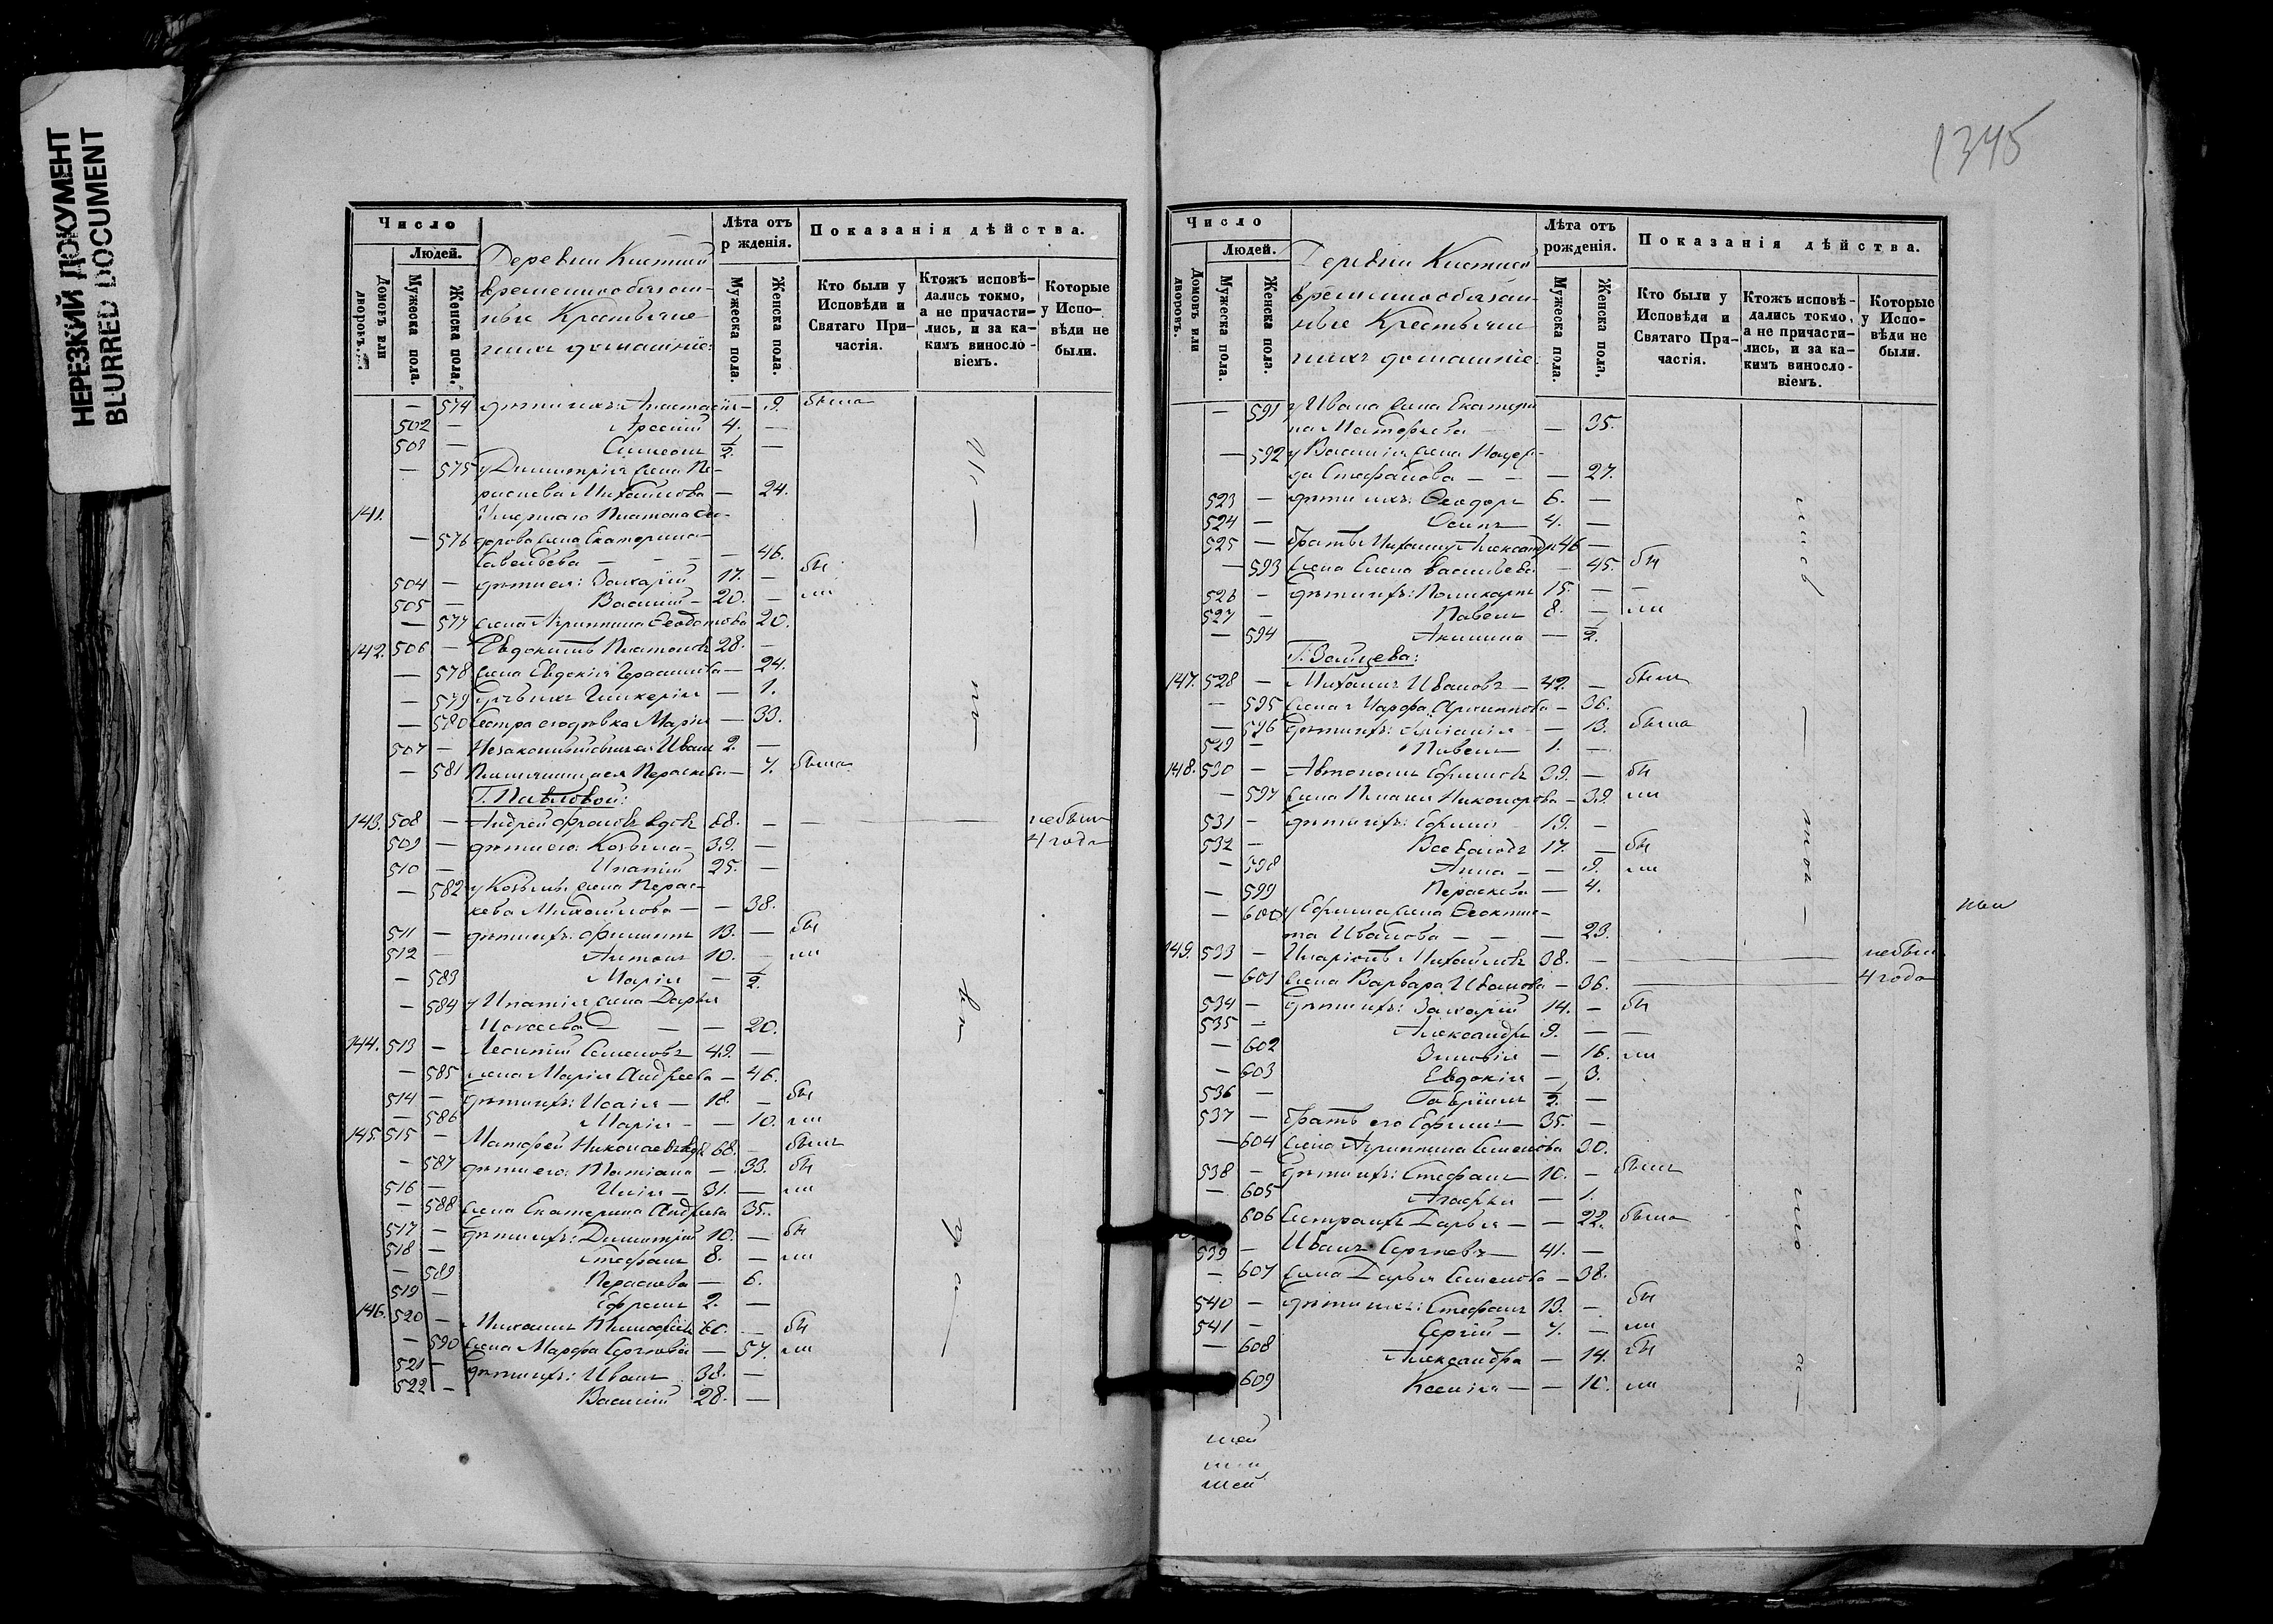 НЕРЕЗКИЙ ДОКУМЕНТ
BLURRED DOCUMENT
Число
Людей.
Домовъ или дворовъ.
Мужеска пола.
Женска пола.
Деревни
временнообязан-
ные Крестьяне
ихъ домашніе:
Лѣта отъ рожденія.
Мужеска пола.
Женска пола.
Показанія дѣйства.
Кто были у Исповѣди и Святаго Причастія.
Ктожъ исповѣдались токмо, а не причастились, и за какимъ винословіемъ.
Которые у Исповѣди не были.
— 574 дѣти ихъ: Анастасія — 9. была
502 — Арсеній 4. —
503 — Симеонъ ½ —
— 575 у Димитрія жена Па-
раскева Михайлова — 24.
141. Умершаго Платона
— 576 жена Екатерина
Савельева — 46.
504 — дѣти ея: Захарій 17. — бы
505 — Василій — 20. — ли
— 577 жена Агриппина Ѳеодотова 20.
142. 506 — Евдокимъ Платоновъ 28. —
— 578 жена Евдокія Герасимова — 24.
— 579 дочь ихъ Гликерія — 1.
— 580 сестра его дѣвка Марія — 33.
507 — Незаконный сынъ ея Иванъ 2. —
— 581 Племянница ея Параскева — 7. была
Г. Павловой:
143. 508 — Андрей вдовъ 68. — небылъ
509 — дѣти его: Козьма — 39. — 4 года
510 — Ипатій 25. —
— 582 у Козьмы жена Парас-
кева Михайлова — — 38.
511 — дѣти ихъ: Филиппъ 13. — бы
512 — Антонъ 10. — ли
— 583 Марія — ½
— 584 у Ипатія жена Дарья
— — 20.
144. 513 — Леонтій Семеновъ 49. —
— 585 жена Марія Андреева — 46.
514 — дѣти ихъ: Исаія — 18. — бы
— 586 Марія — — 10. ли
145. 515 — Матѳей Николаевъ вдовъ 68. — былъ
— 587 дѣти его: Татіана — 33. бы
516 — Илія — 31. — ли
— 588 жена Екатерина Андреева 35.
517 — дѣти ихъ: Димитрій 10. — бы
518 — Стефанъ 8. — ли
— 589 Параскева — 6.
519 — Ефремъ 2. —
146. 520 — Михаилъ Тимофеевъ 60. — бы
— 590 жена Марфа Сергѣева — 57. ли
521 — дѣти ихъ: Иванъ 38. —
522 — Василій 28. —
1345
Число
Людей.
Домовъ или дворовъ.
Мужеска пола.
Женска пола.
Деревни
временнообязан-
ные Крестьяне
ихъ домашніе:
Лѣта отъ рожденія.
Мужеска пола.
Женска пола.
Показанія дѣйства.
Кто были у Исповѣди и Святаго Причастія.
Ктожъ исповѣдались токмо, а не причастились, и за какимъ винословіемъ.
Которые у Исповѣди не были.
— 591 у Ивана жена Екатери
на Матѳеева — 35.
— 592 у Василія жена Надеж-
да Стефанова — — 27.
523 — дѣти ихъ: Ѳеодоръ 6. —
524 — Осипъ 4. —
525 — братъ Михаилу Александръ 46 —
— 593 жена Елена Васильева — 45. бы
526 — дѣти ихъ: Поликарпъ 15. — —
527 — Павелъ 8. — ли
— 594 Акилина — ½
Г. Зайцева:
147. 528 — Михаилъ Ивановъ — 42. — былъ
— 595 жена Марфа — 36.
— 596 дѣти ихъ: — 13. была
529 — Павелъ 1. —
148. 530 — Автономъ Ефимовъ 39. — бы
— 597 жена Никонорова — 39. ли
531 — дѣти ихъ: Ефимъ 19. —
532 — Всеволодъ 17. — бы
— 598 Анна — — 9. ли
— 599 Параскева — 4.
— 600 у Ефима жена Ѳеоктис-
та Иванова — — — 23.
149. 533 — Иларіонъ Михайловъ 38. — небыли
— 601 жена Варвара Иванова — 36. 4 года
534 — дѣти ихъ: Захарій 14. — бы
535 — Александръ 9. — —
— 602 Зиновія — 16. ли
— 603 Евдокія — 3.
536 — Гавріилъ ½ —
537 — братъ его Ефимъ — 35. —
— 604 жена Агриппина Семенова 30.
538 — дѣти ихъ: Стефанъ 10. — былъ
— 605 Агафья — 1.
606 Сестра ихъ Дарья — — 22. была
539 — Иванъ Сергѣевъ — 41. —
— 607 жена Дарья Семенова — 38.
540 — дѣти ихъ: Стефанъ 13. — бы
541 — Сергій — 7. — ли
— 608 Александра — 14. бы
609 Ксенія — — 10. ли